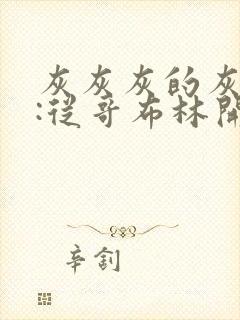 灰灰灰的灰
:從哥布林開
辛劊